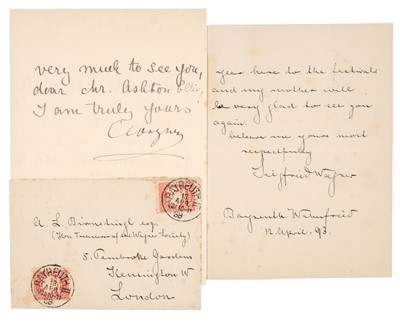 very much to see you,
dear Mr. Ashton Ellis,
I am truly yours
CWagner
year here to the festivals
and my mother will
be very glad to see you
again.
believe me yours most
respectfully
Siegfried Wagner
Bayreuth Wahnfried
12 April. 93.
BAYREUTH
A L. esq
(Hon Treasurer of the Wagner Society)
5. Pembroke Gardens
Kensington W
London
BAYREUTH